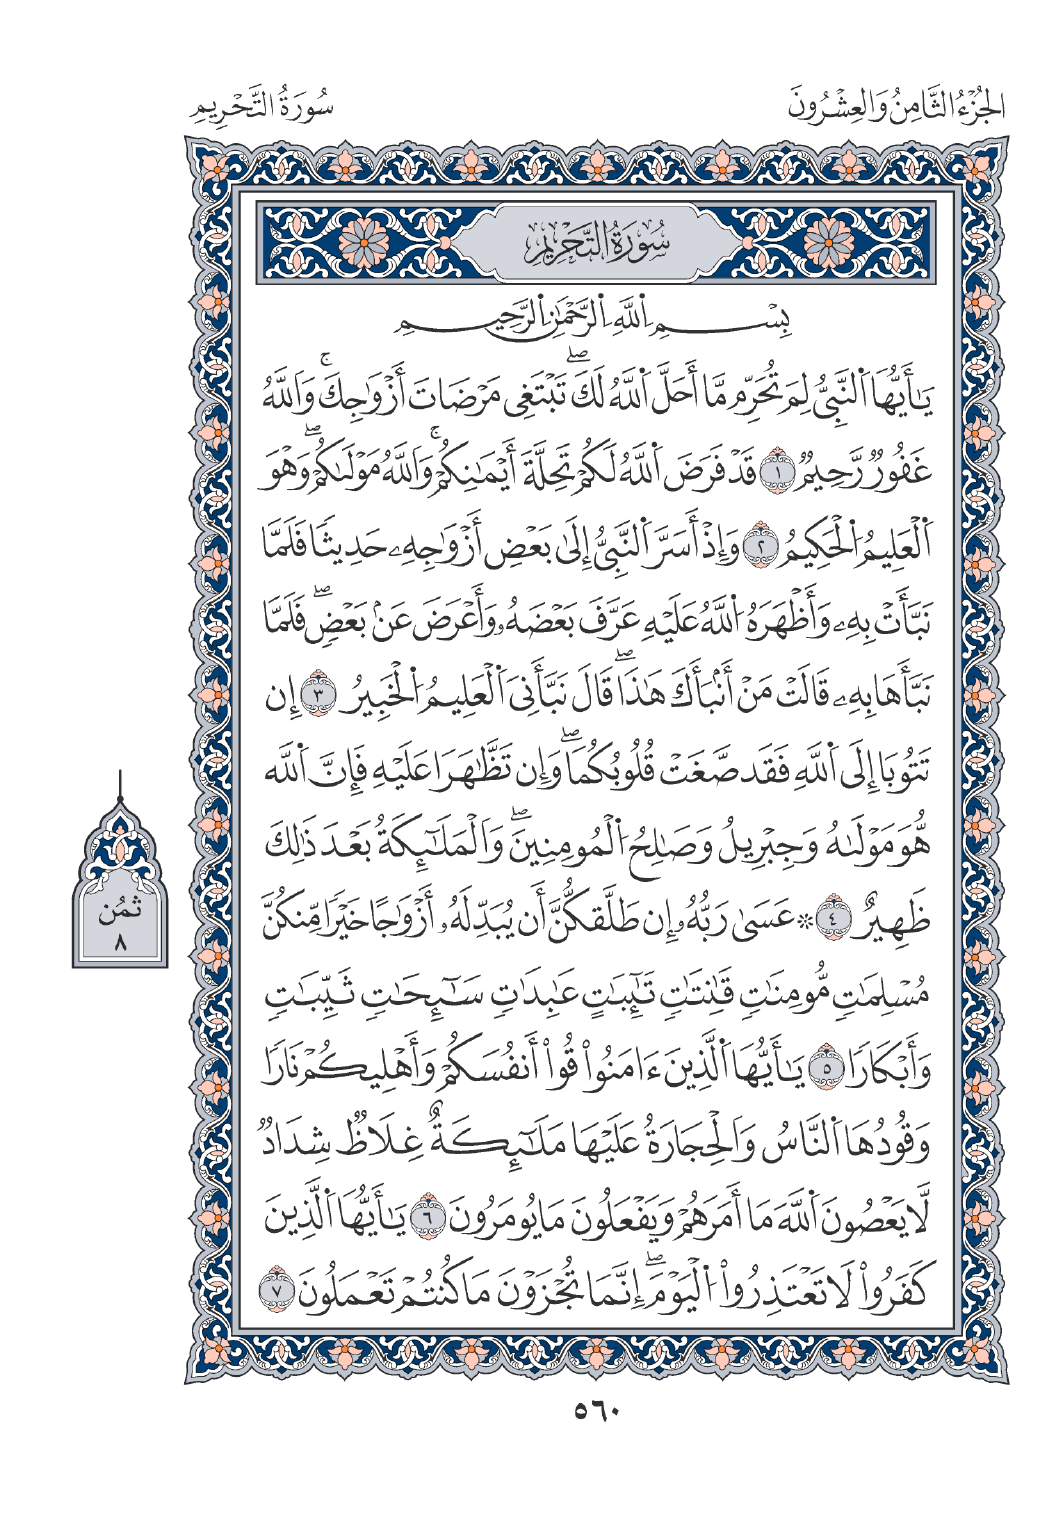 الجُزْءُ الثَّامِنُ وَالعِشْرُونَ
سُورَةُ التَّحْرِيمِ
سُورَةُ التَّحْرِيمِ
بِسْمِ اِ۬للَّهِ اِ۬لرَّحْمَٰنِ اِ۬لرَّحِيمِ
يَٰٓأَيُّهَا اَ۬لنَّبِيُّ لِمَ تُحَرِّم مَّا أَحَلَّ اَ۬للَّهُ لَكَۖ تَبْتَغِي مَرْضَاتَ أَزْوَٰجِكَۚ وَاَللَّهُ
غَفُورٌ رَّحِيمٌ ١ قَدْ فَرَضَ اَ۬للَّهُ لَكُمْ تَحِلَّةَ أَيْمَٰنِكُمْۚ وَاَللَّهُ مَوْلَىٰكُمْۖ وَهْوَ
اَ۬لْعَلِيمُ اُ۬لْحَكِيمُ ٢ وَإِذْ أَسَرَّ اَ۬لنَّبِيُّ إِلَىٰ بَعْضِ أَزْوَٰجِهِۦ حَدِيثًا فَلَمَّا
نَبَّأَتْ بِهِۦ وَأَظْهَرَهُ اُ۬للَّهُ عَلَيْهِ عَرَّفَ بَعْضَهُۥ وَأَعْرَضَ عَنۢ بَعْضٖۖ فَلَمَّا
نَبَّأَهَا بِهِۦ قَالَتْ مَنْ أَنۢبَأَكَ هَٰذَاۖ قَالَ نَبَّأَنِيَ اَ۬لْعَلِيمُ اُ۬لْخَبِيرُ ٣ إِن
تَتُوبَا إِلَى اَ۬للَّهِ فَقَد صَّغَتْ قُلُوبُكُمَاۖ وَإِن تَظَّٰهَرَا عَلَيْهِ فَإِنَّ اَ۬للَّه
هُّوَ مَوْلَىٰهُ وَجِبْرِيلُ وَصَٰلِحُ اُ۬لْمُومِنِينَۖ وَاَلْمَلَٰٓئِكَةُ بَعْدَ ذَٰلِكَ
ظَهِيرٌ ٤ ۞عَسَىٰ رَبُّهُۥ إِن طَلَّقكُّنَّ أَن يُبَدِّلَهُۥ أَزْوَٰجًا خَيْرٗا مِّنكُنَّ
مُسْلِمَٰتٖ مُّومِنَٰتٖ قَٰنِتَٰتٖ تَٰٓئِبَٰتٍ عَٰبِدَٰتٖ سَٰٓئِحَٰتٖ ثَيِّبَٰتٖ
وَأَبْكَارٗا ٥ يَٰٓأَيُّهَا اَ۬لَّذِينَ ءَامَنُواْ قُواْ أَنفُسَكُمْ وَأَهْلِيكُمْ نَارٗا
وَقُودُهَا اَ۬لنَّاسُ وَاَلْحِجَارَةُ عَلَيْهَا مَلَٰٓئِكَةٌ غِلَاظٞ شِدَادٞ
لَّا يَعْصُونَ اَ۬للَّهَ مَا أَمَرَهُمْ وَيَفْعَلُونَ مَا يُومَرُونَ ٦ يَٰٓأَيُّهَا اَ۬لَّذِينَ
كَفَرُواْ لَا تَعْتَذِرُواْ اُ۬لْيَوْمَۖ إِنَّمَا تُجْزَوْنَ مَا كُنتُمْ تَعْمَلُونَ ٧
ثمُن
٨
٥٦٠